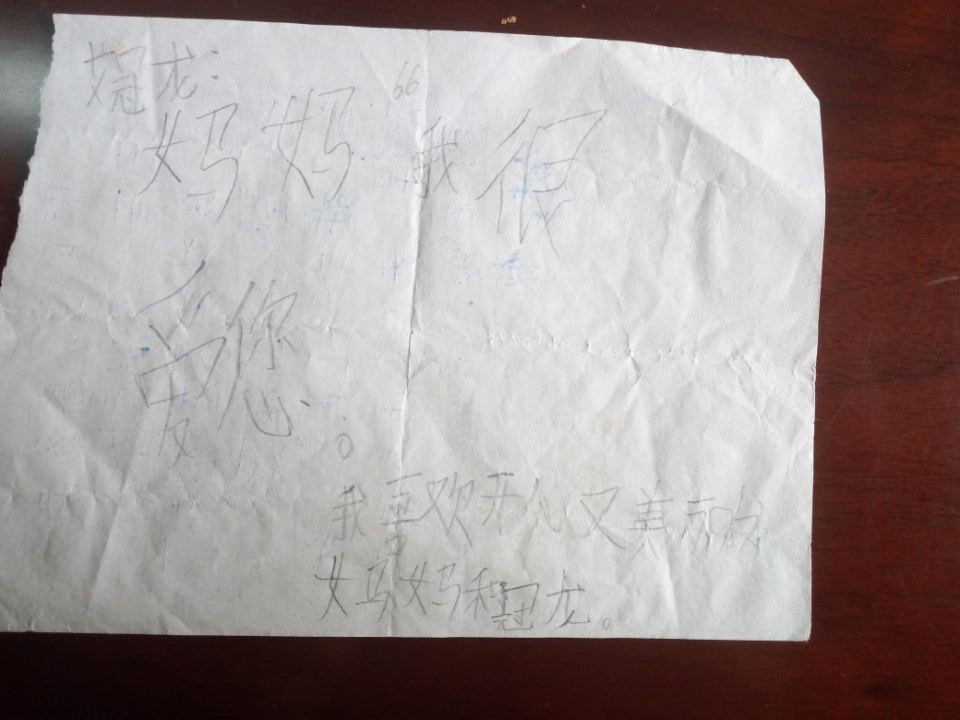 冠龙:
66
妈妈我很
爱您。
我喜欢开心又美丽的
妈妈和冠龙。